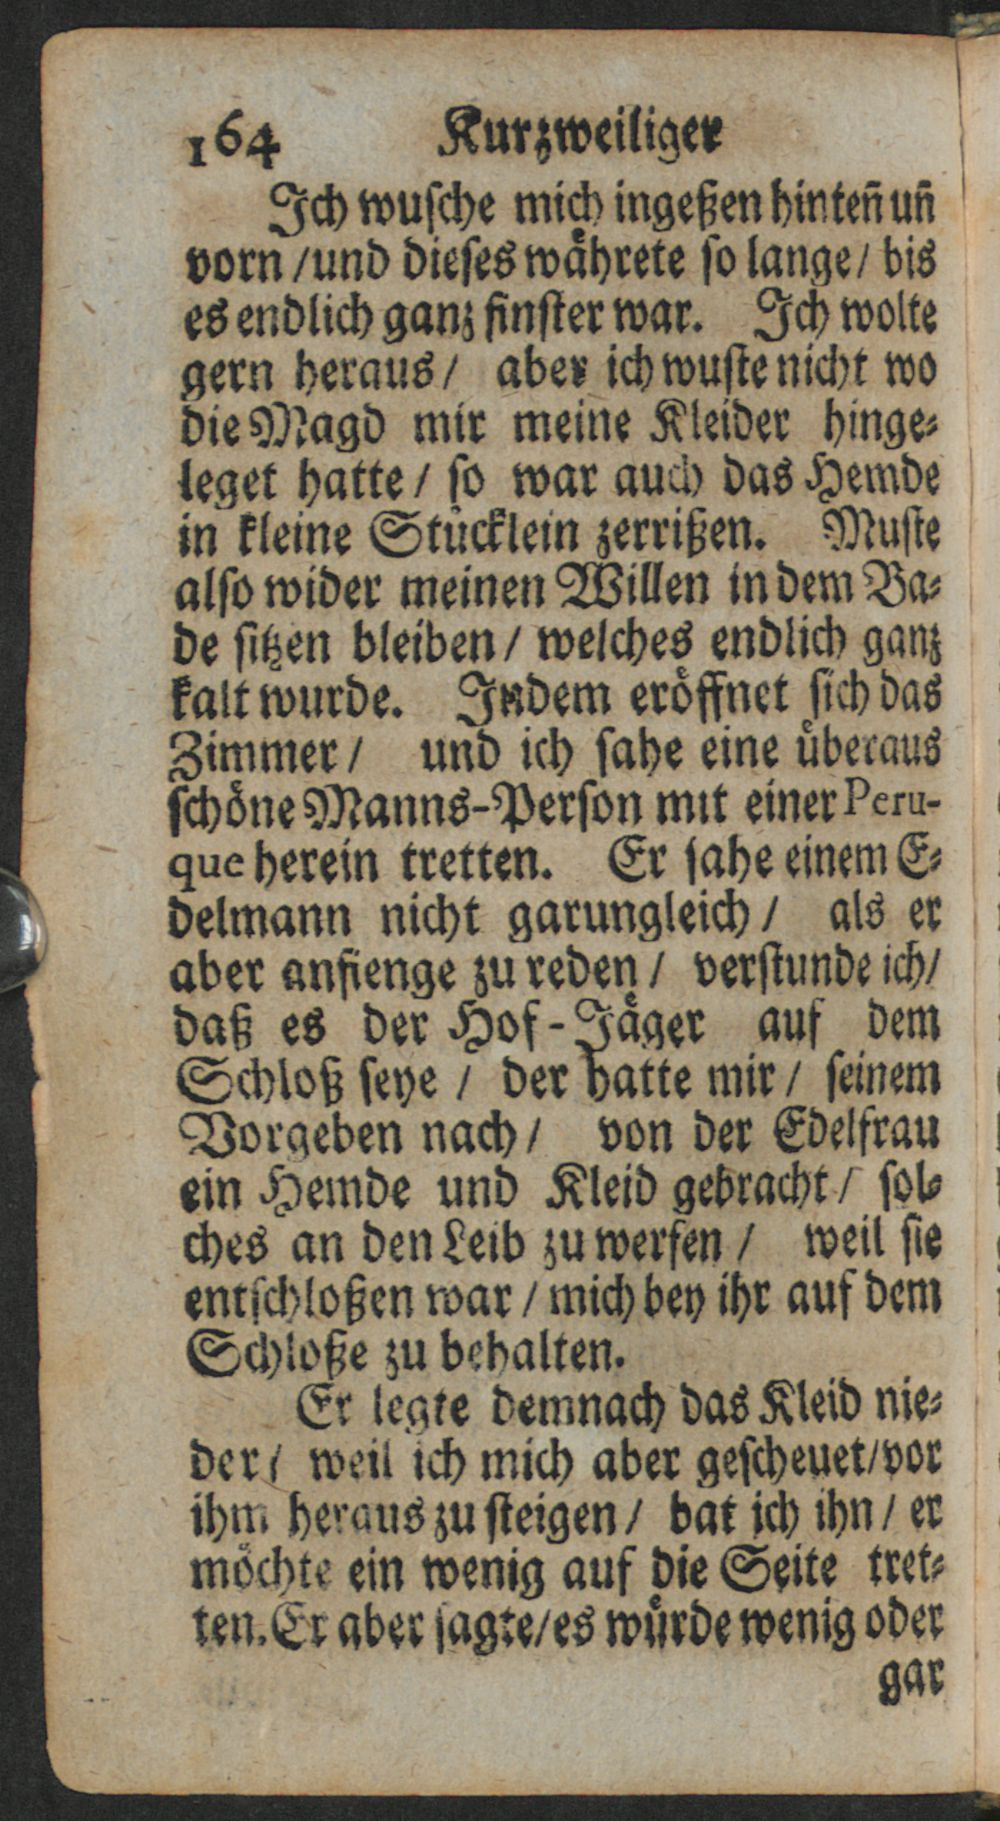 164 Kurzweiliger
Ich wusche mich ingeßen hinten̄ un̄
vorn / und dieses währete so lange / bis
es endlich ganz finster war. Ich wolte
gern heraus / aber ich wuste nicht wo
die Magd mir meine Kleider hinge-
leget hatte / so war auch das Hemde
in kleine Stücklein zerrißen. Muste
also wider meinen Willen in dem Ba-
de sitzen bleiben / welches endlich ganz
kalt wurde. Indem eröffnet sich das
Zimmer / und ich sahe eine überaus
schöne Manns-Person mit einer Peru-
que herein tretten. Er sahe einem E-
delmann nicht garungleich / als er
aber anfienge zu reden / verstunde ich /
daß es der Hof-Jäger auf dem
Schloß seye / der hatte mir / seinem
Vorgeben nach / von der Edelfrau
ein Hemde und Kleid gebracht / sol-
ches an den Leib zu werfen / weil sie
entschloßen war / mich bey ihr auf dem
Schloße zu behalten.
Er legte demnach das Kleid nie-
der / weil ich mich aber gescheuet / vor
ihm heraus zu steigen / bat ich ihn / er
möchte ein wenig auf die Seite tret-
ten. Er aber sagte / es würde wenig oder
gar